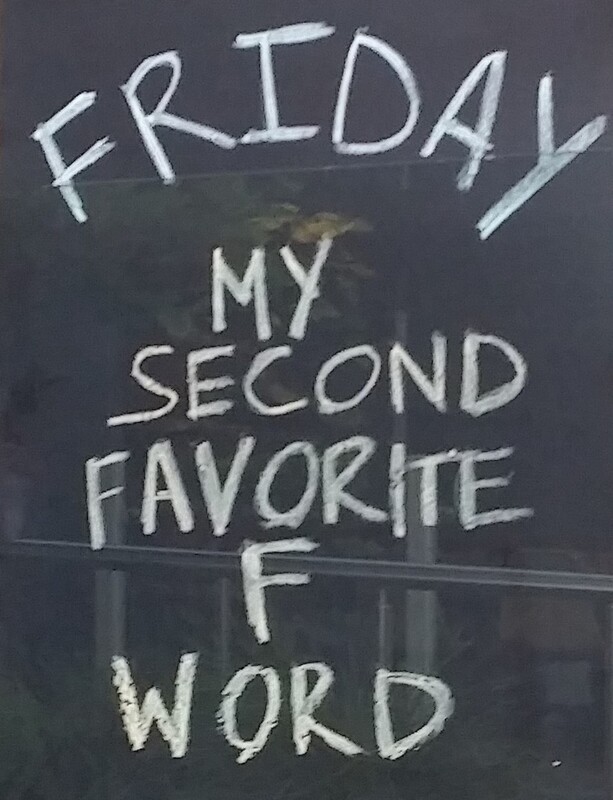 FRIDAY
MY
SECOND
FAVORITE
F
WORD